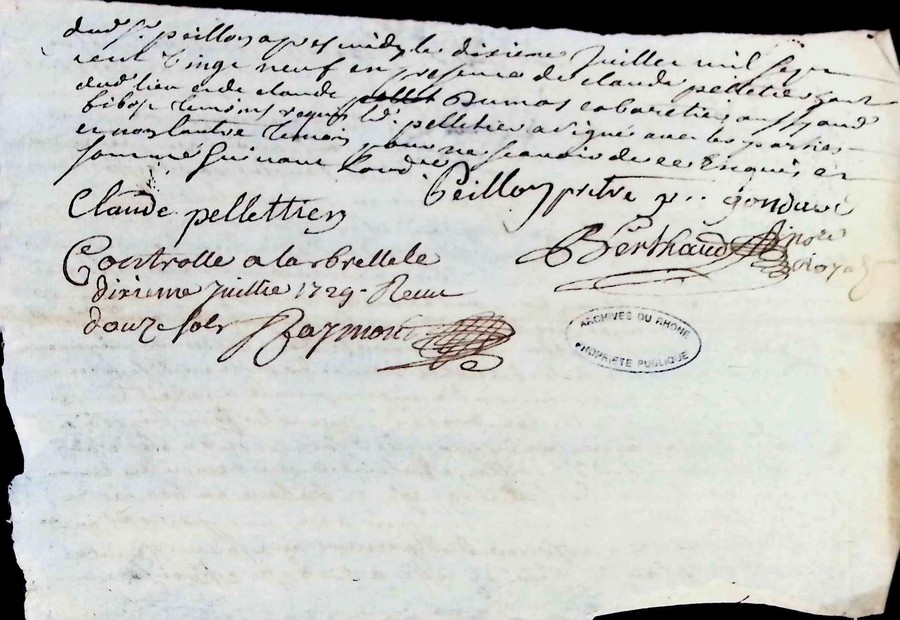 dud sr. peillon apres midy le dixieme Juillet mil sept
cent vingt neuf en presence de claude pelletier
dud lieu et de claude Dumas cabaretier aussy aud
temoins requis led. pelletier a signé avec les parties
et non lautre temoin pour ne scavoir de ce Enquis et
sommé suivant Lord.ce
Claude pellettier
Peillon prêtre
Controlle a larbrelle le
dixieme Juillie 1729 Receu
douze sols Raymond
Berthaud
no.re
Royal
ARCHIVES DU RHONE
PROPRIETE PUBLIQUE